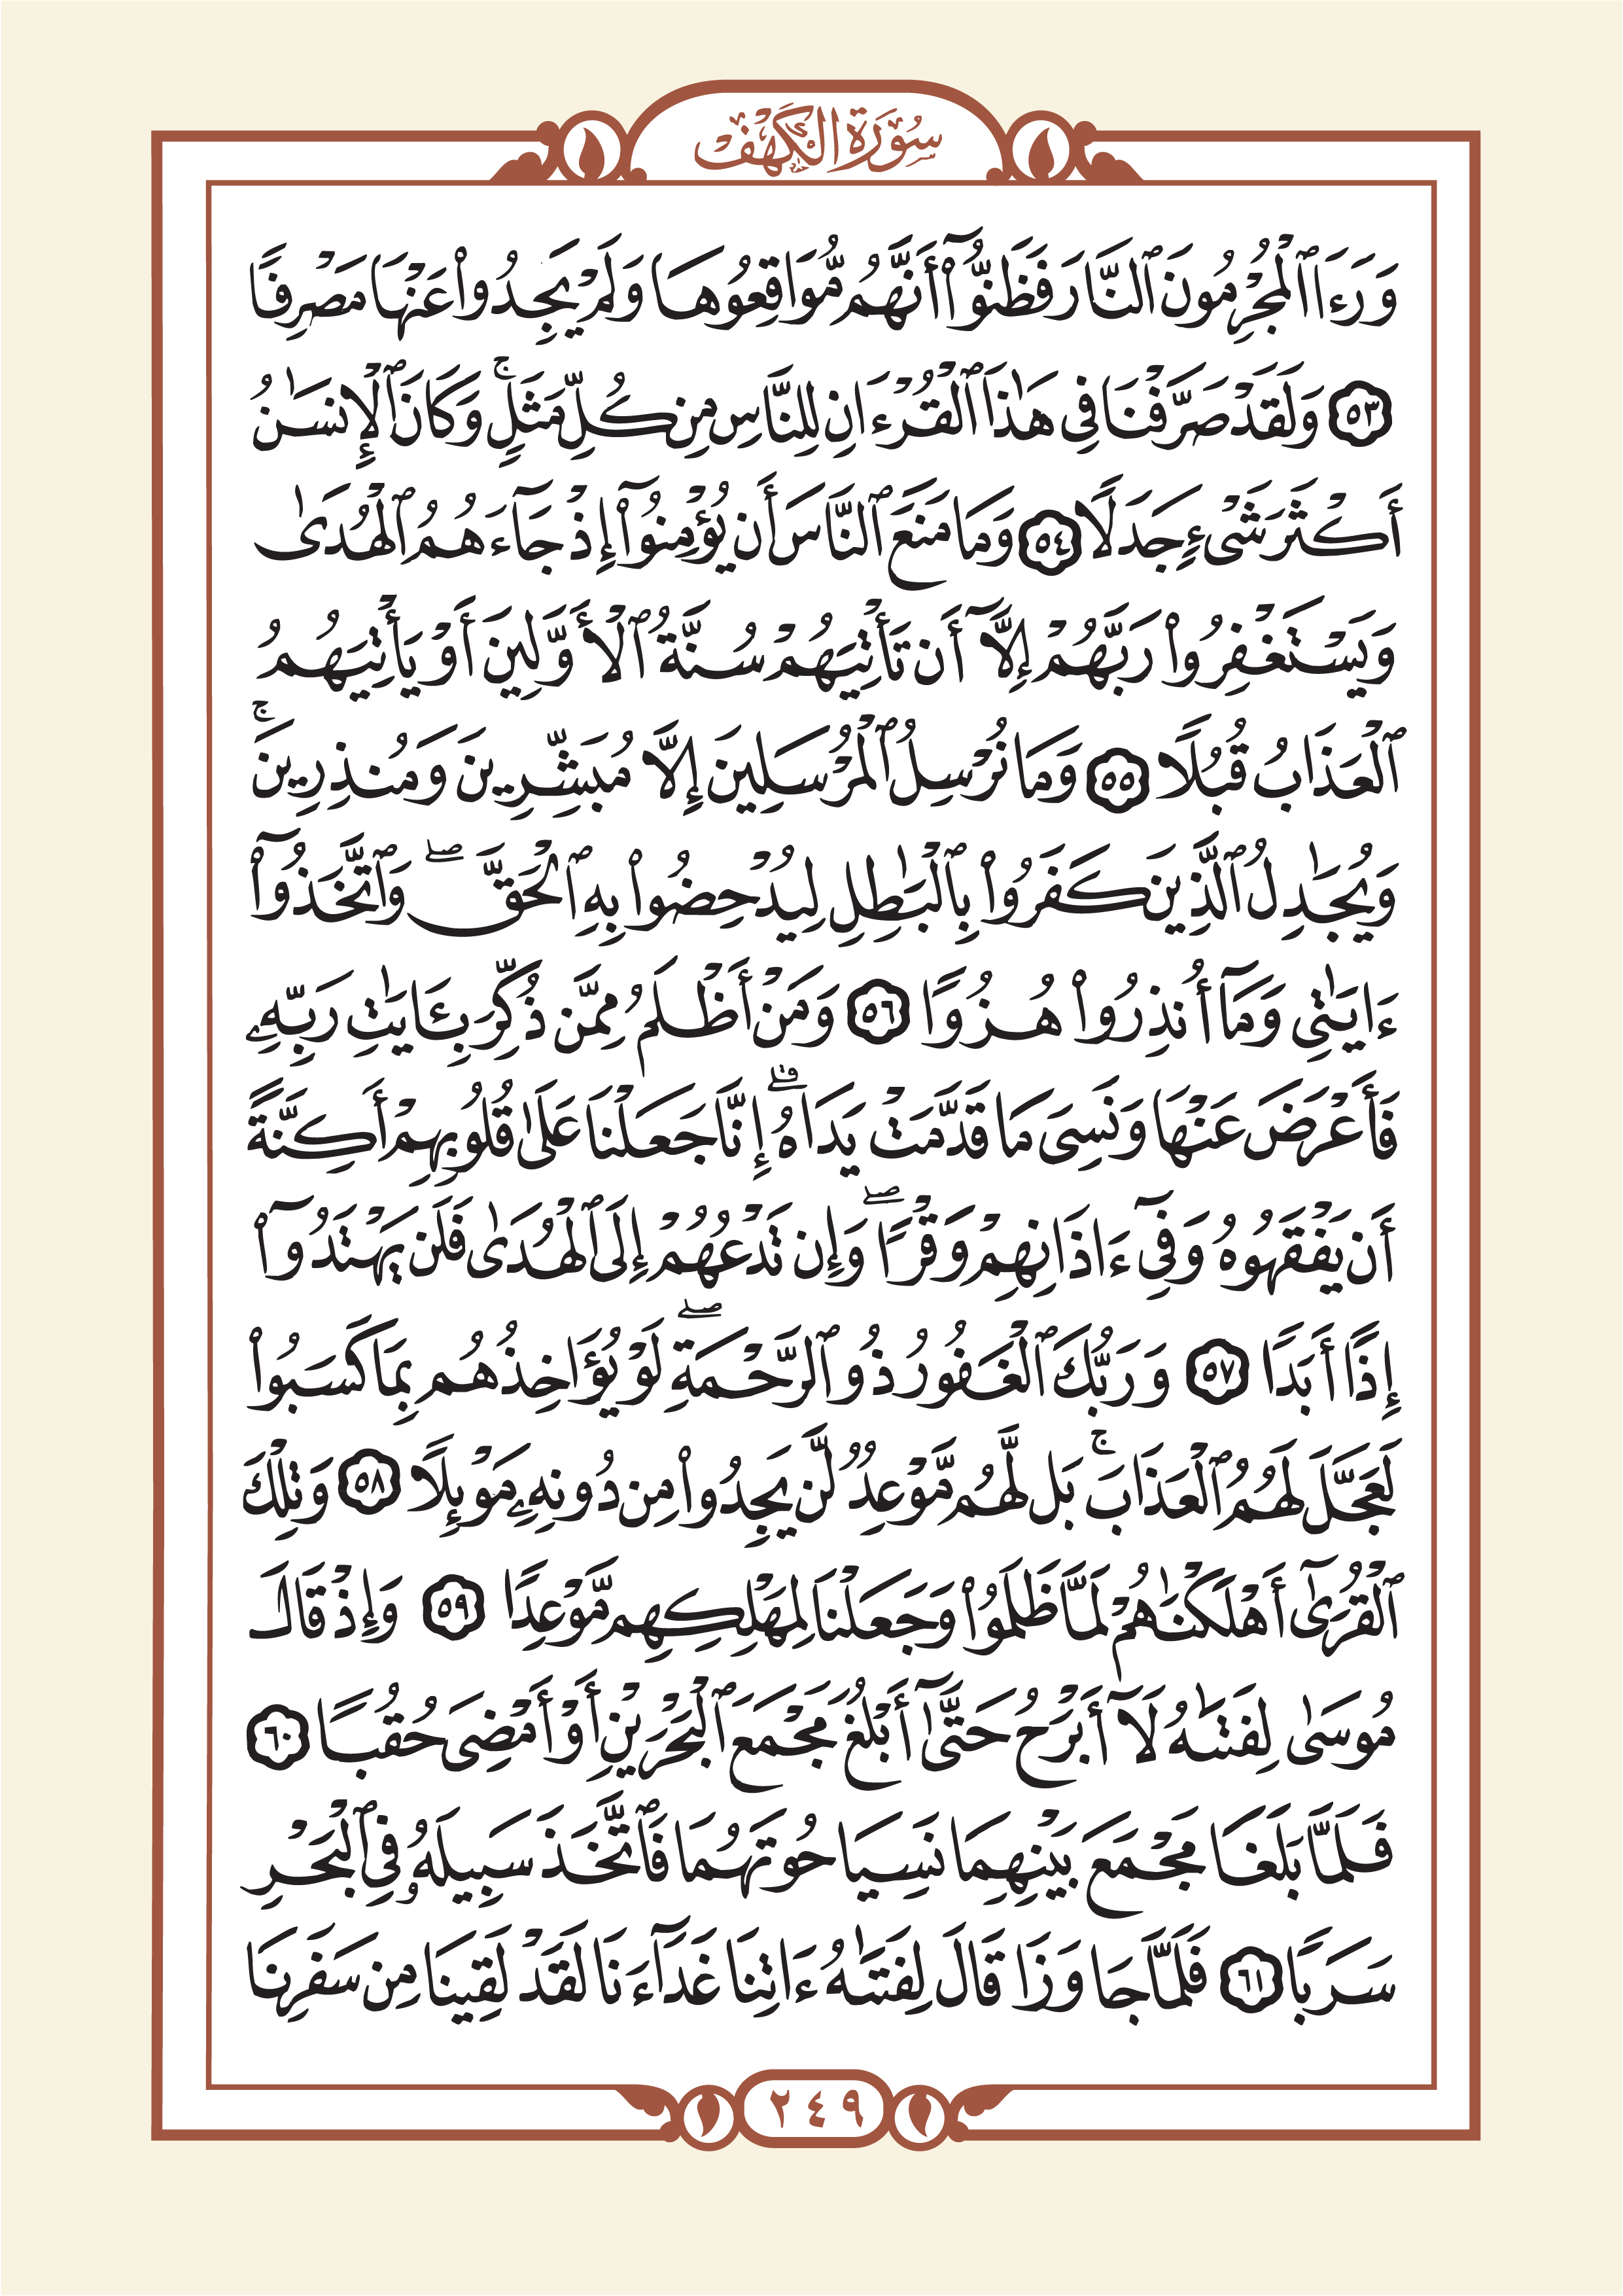 سُورَةُ الكَهْف
وَرَءَا ٱلْمُجْرِمُونَ ٱلنَّارَ فَظَنُّوٓا۟ أَنَّهُم مُّوَاقِعُوهَا وَلَمْ يَجِدُوا۟ عَنْهَا مَصْرِفًا
٥٣ وَلَقَدْ صَرَّفْنَا فِى هَٰذَا ٱلْقُرْءَانِ لِلنَّاسِ مِن كُلِّ مَثَلٍۚ وَكَانَ ٱلْإِنسَٰنُ
أَكْثَرَ شَىْءٍ جَدَلًا ٥٤ وَمَا مَنَعَ ٱلنَّاسَ أَن يُؤْمِنُوٓا۟ إِذْ جَآءَهُمُ ٱلْهُدَىٰ
وَيَسْتَغْفِرُوا۟ رَبَّهُمْ إِلَّآ أَن تَأْتِيَهُمْ سُنَّةُ ٱلْأَوَّلِينَ أَوْ يَأْتِيَهُمُ
ٱلْعَذَابُ قُبُلًا ٥٥ وَمَا نُرْسِلُ ٱلْمُرْسَلِينَ إِلَّا مُبَشِّرِينَ وَمُنذِرِينَۚ
وَيُجَٰدِلُ ٱلَّذِينَ كَفَرُوا۟ بِٱلْبَٰطِلِ لِيُدْحِضُوا۟ بِهِ ٱلْحَقَّۖ وَٱتَّخَذُوٓا۟
ءَايَٰتِى وَمَآ أُنذِرُوا۟ هُزُوًا ٥٦ وَمَنْ أَظْلَمُ مِمَّن ذُكِّرَ بِـَٔايَٰتِ رَبِّهِۦ
فَأَعْرَضَ عَنْهَا وَنَسِىَ مَا قَدَّمَتْ يَدَاهُۗ إِنَّا جَعَلْنَا عَلَىٰ قُلُوبِهِمْ أَكِنَّةً
أَن يَفْقَهُوهُ وَفِىٓ ءَاذَانِهِمْ وَقْرًاۖ وَإِن تَدْعُهُمْ إِلَى ٱلْهُدَىٰ فَلَن يَهْتَدُوٓا۟
إِذًا أَبَدًا ٥٧ وَرَبُّكَ ٱلْغَفُورُ ذُو ٱلرَّحْمَةِۖ لَوْ يُؤَاخِذُهُم بِمَا كَسَبُوا۟
لَعَجَّلَ لَهُمُ ٱلْعَذَابَۚ بَل لَّهُم مَّوْعِدٌ لَّن يَجِدُوا۟ مِن دُونِهِۦ مَوْئِلًا ٥٨ وَتِلْكَ
ٱلْقُرَىٰٓ أَهْلَكْنَٰهُمْ لَمَّا ظَلَمُوا۟ وَجَعَلْنَا لِمَهْلِكِهِم مَّوْعِدًا ٥٩ وَإِذْ قَالَ
مُوسَىٰ لِفَتَىٰهُ لَآ أَبْرَحُ حَتَّىٰٓ أَبْلُغَ مَجْمَعَ ٱلْبَحْرَيْنِ أَوْ أَمْضِىَ حُقُبًا ٦٠
فَلَمَّا بَلَغَا مَجْمَعَ بَيْنِهِمَا نَسِيَا حُوتَهُمَا فَٱتَّخَذَ سَبِيلَهُۥ فِى ٱلْبَحْرِ
سَرَبًا ٦١ فَلَمَّا جَاوَزَا قَالَ لِفَتَىٰهُ ءَاتِنَا غَدَآءَنَا لَقَدْ لَقِينَا مِن سَفَرِنَا
٢٤٩